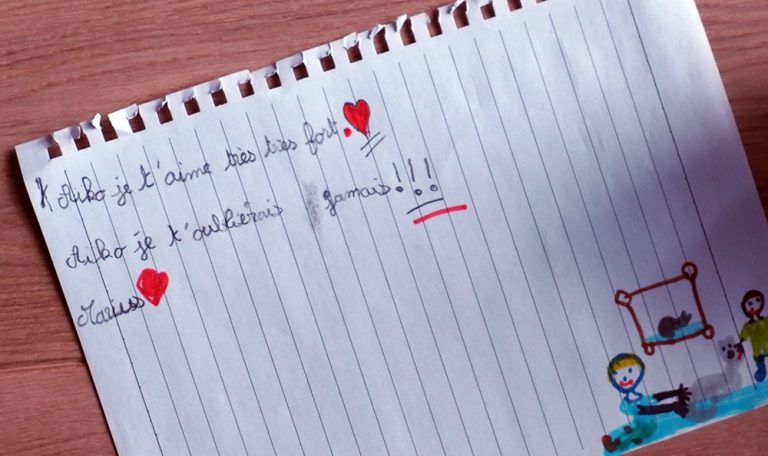 Aiko je t'aime très très fort.
Aiko je t'oublierais jamais!!!
Marius